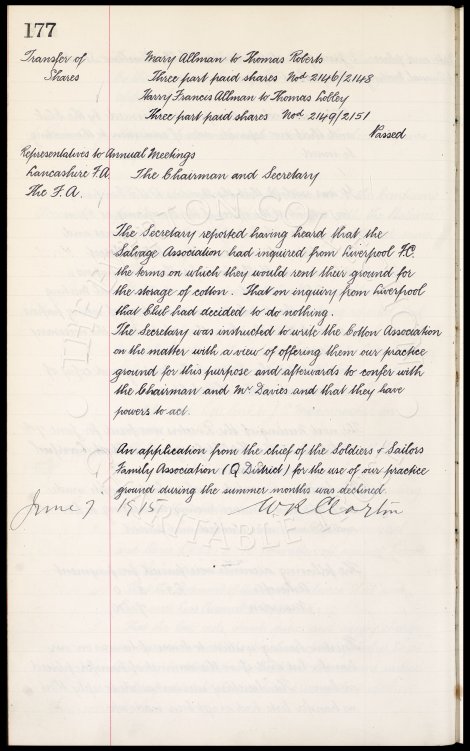 177
Transfer of Shares
Mary Allman to Thomas Roberts
Three part paid shares Nod 2146/2148
Harry Francis Allman to Thomas Lobley
Three part paid shares Nod 2149/2151
Passed
Representatives to Annual Meetings
Lancashire F.A. The Chairman and Secretary
The F.A.
The Secretary reported having heard that the
Salvage Association had inquired from Liverpool F.C.
the terms on which they would rent their ground for
the storage of cotton. That on inquiry from Liverpool
that Club had decided to do nothing.
The Secretary was instructed to write the Cotton Association
on the matter with a view of offering them our practice
ground for this purpose and afterwards to confer with
the Chairman and Mr Davies and that they have
powers to act.
An application from the chief of the Soldiers & Sailors
Family Association (Q District) for the use of our practice
ground during the summer months was declined.
June 7 1915 W. R. Clayton